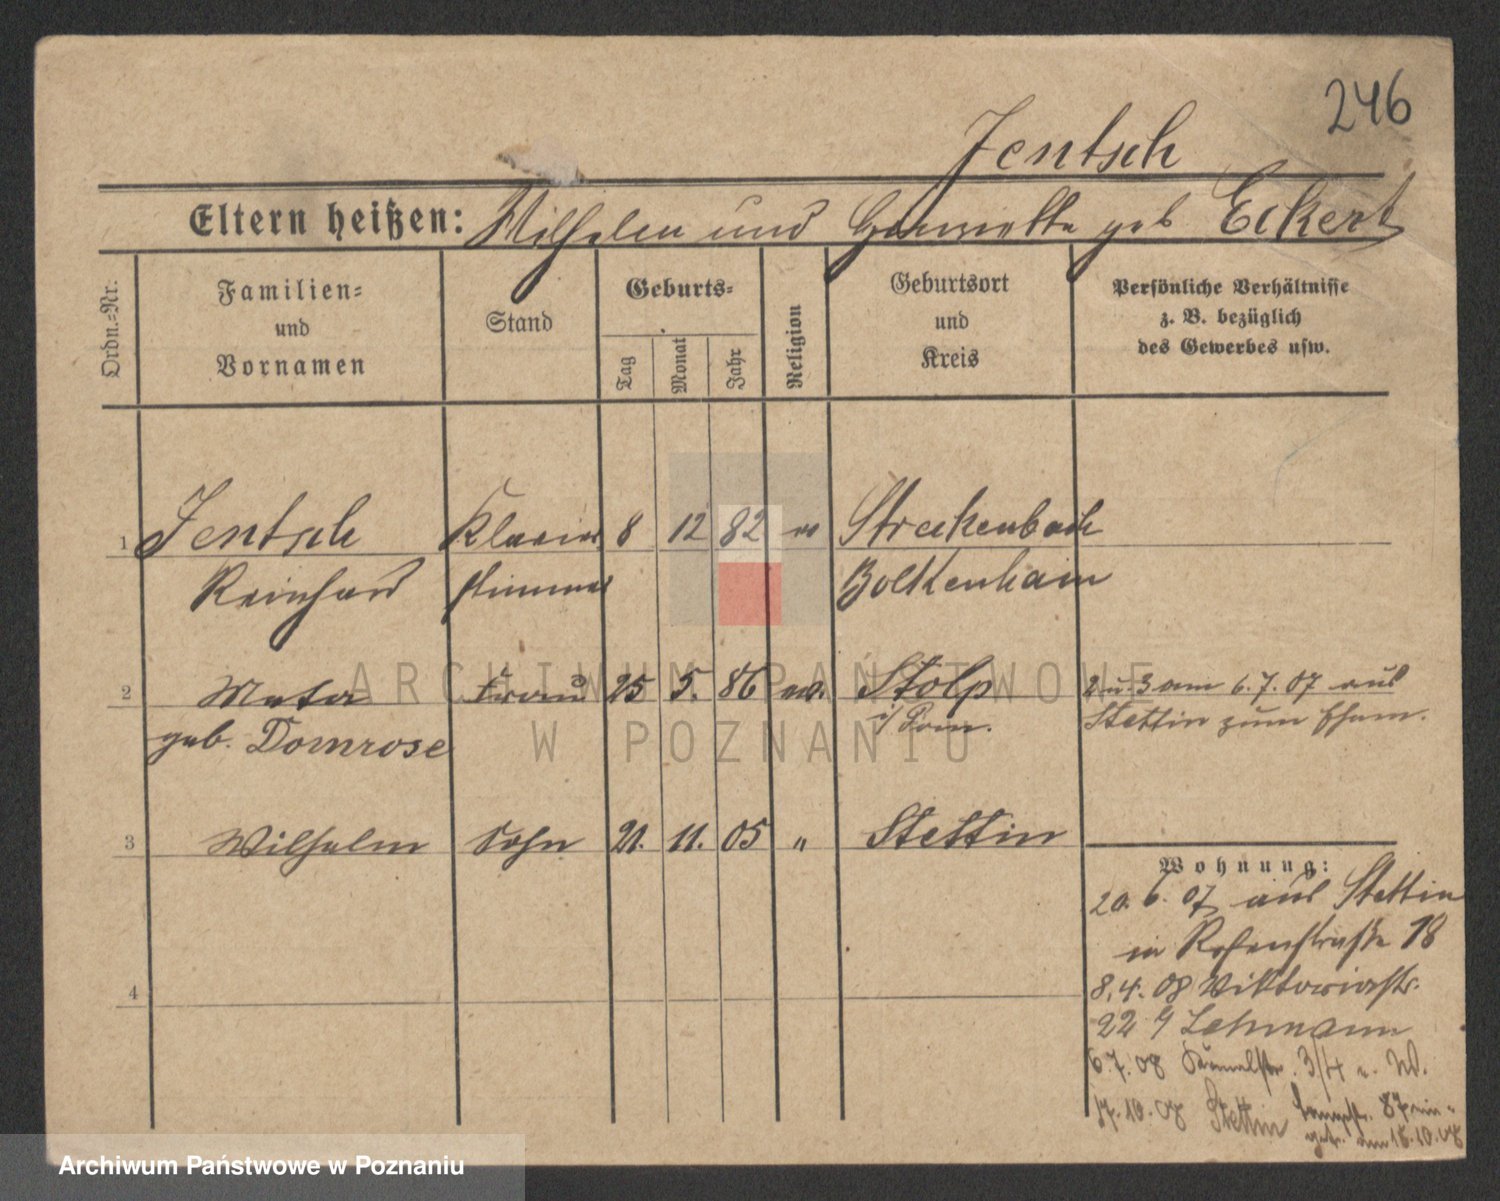 246
Jentsch
Eltern heißen: Wilhelm und Henriette geb Eckert
Ordn.-Nr.
Familien-
und
Vornamen
Stand
Geburts-
Tag
Monat
Jahr
Religion
Geburtsort
und
Kreis
Persönliche Verhältnisse
z. B. bezüglich
des Gewerbes usw.
1 Jentsch Klavier 8 12 82 ev Streckenbach
Reinhard stimmer Bolkenhain
2 Meta Frau 25 5. 86 ev. Stolp 2 u. 3 am 6.7.07 aus
geb. Domrose i/Pom. Stettin zum Ehem.
3 Wilhelm Sohn 21. 11. 05 " Stettin
Wohnung:
20. 6. 07 aus Stettin
in Rosenstraße 18
8.4.08 Viktoriastr.
22 Lehmann
4
6.7.08 3/4 W.
17.10.08 Stettin 87 ein-
getr. am 15.10.08
ARCHIWUM PAŃSTWOWE
W POZNANIU
Archiwum Państwowe w Poznaniu